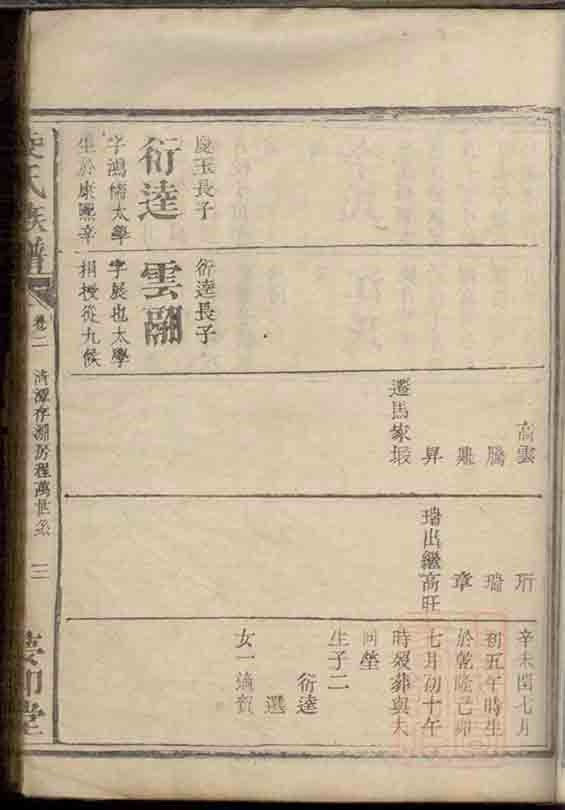 玉長子
衍逵
字鴻太學
生於康熙辛
衍逵長子
雲翮
字展也太學
捐授從九候
高雲
騰
昇
遷馬家塅
珩
瑞
章
瑞出繼高旺
辛未閏七月
初五午時生
於乾隆己卯
七月初十午
時歿葬與大
同塋
生子二
衍逵
選
女一適賀
氏族譜
卷二
清潭存淵房程萬世系
三
堂